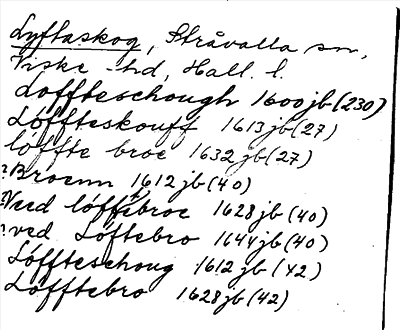 Lyftaskog, Stråvalla sn,
Viske hd, Hall. l.
Loffteschough 1600 jb (230)
Löffteskouff 1613 jb (27)
löffte broe 1632 jb (27)
?Broenn 1612 jb (40)
?Veed löfftebroe 1628 jb (40)
?ved Löftebro 1644 jb (40)
Löffteschoug 1612 jb (42)
Löfftebro 1628 jb (42)